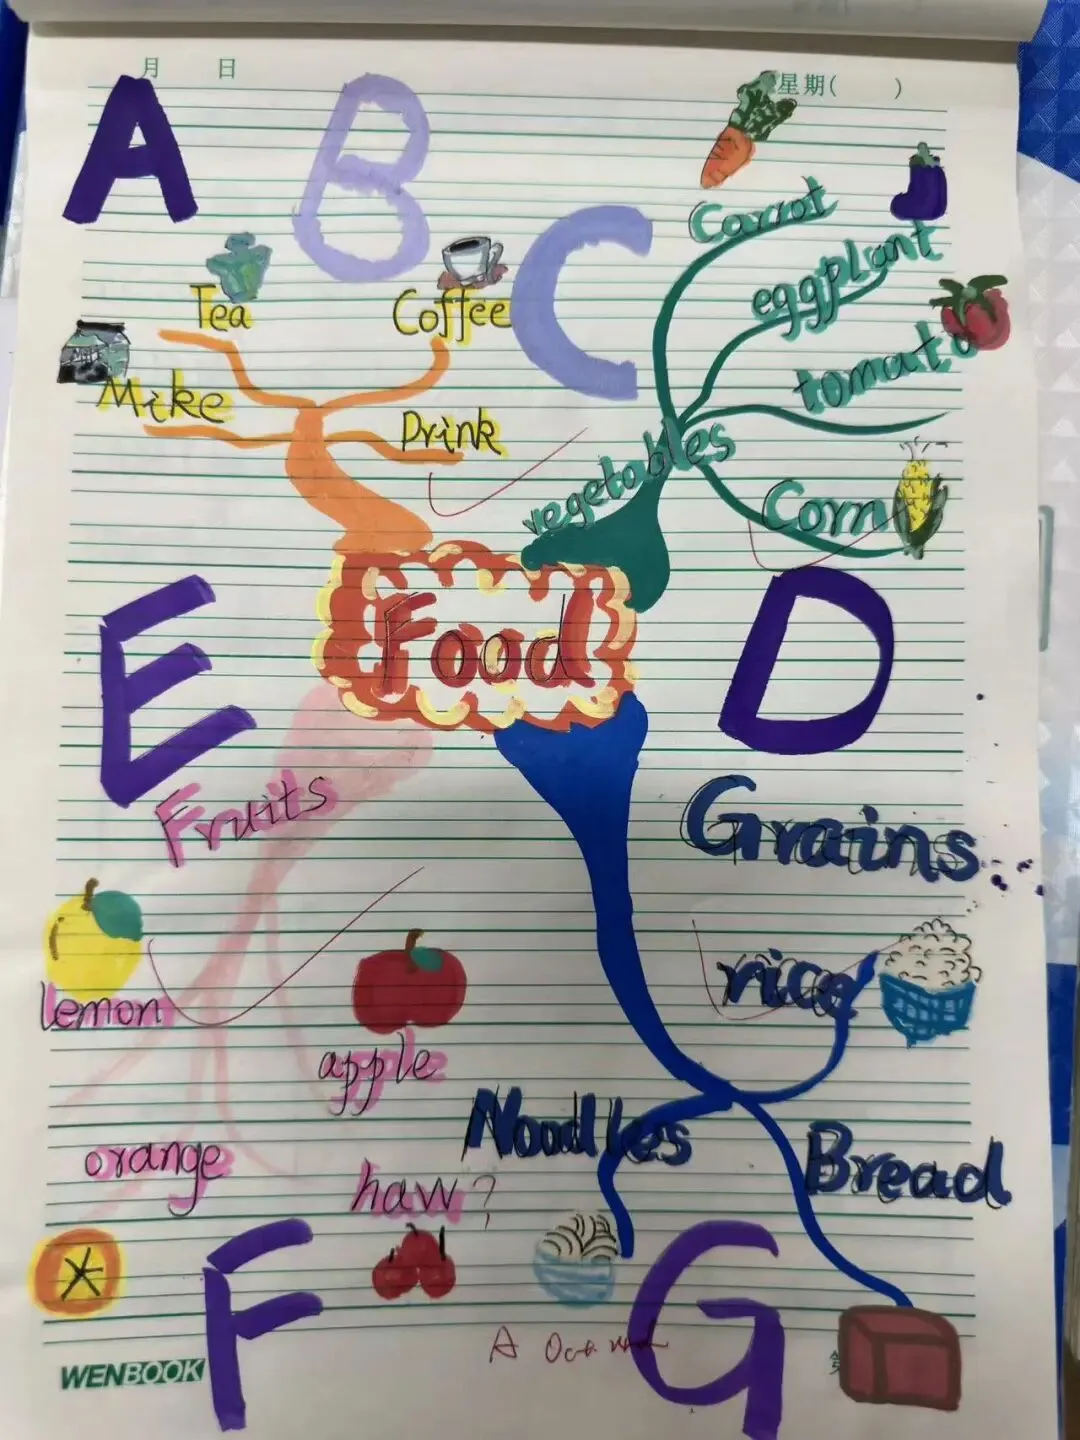 月 日 星期( )
A
B
C
Carrot
eggplant
tomato
Corn
vegetables
Tea
Coffee
Mike
Drink
Food
E
D
Fruits
Grains
lemon
apple
orange
haw?
rice
Noodles
Bread
F
G
A
WENBOOK